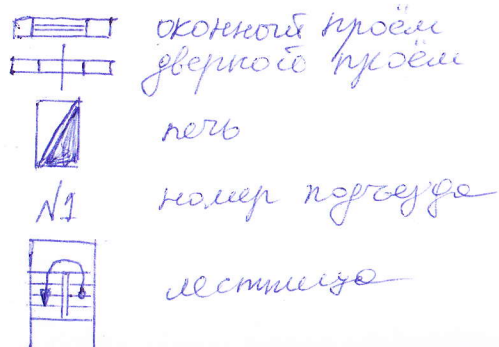 оконный проём
дверного проём
печь
№1 номер подъезда
лестница